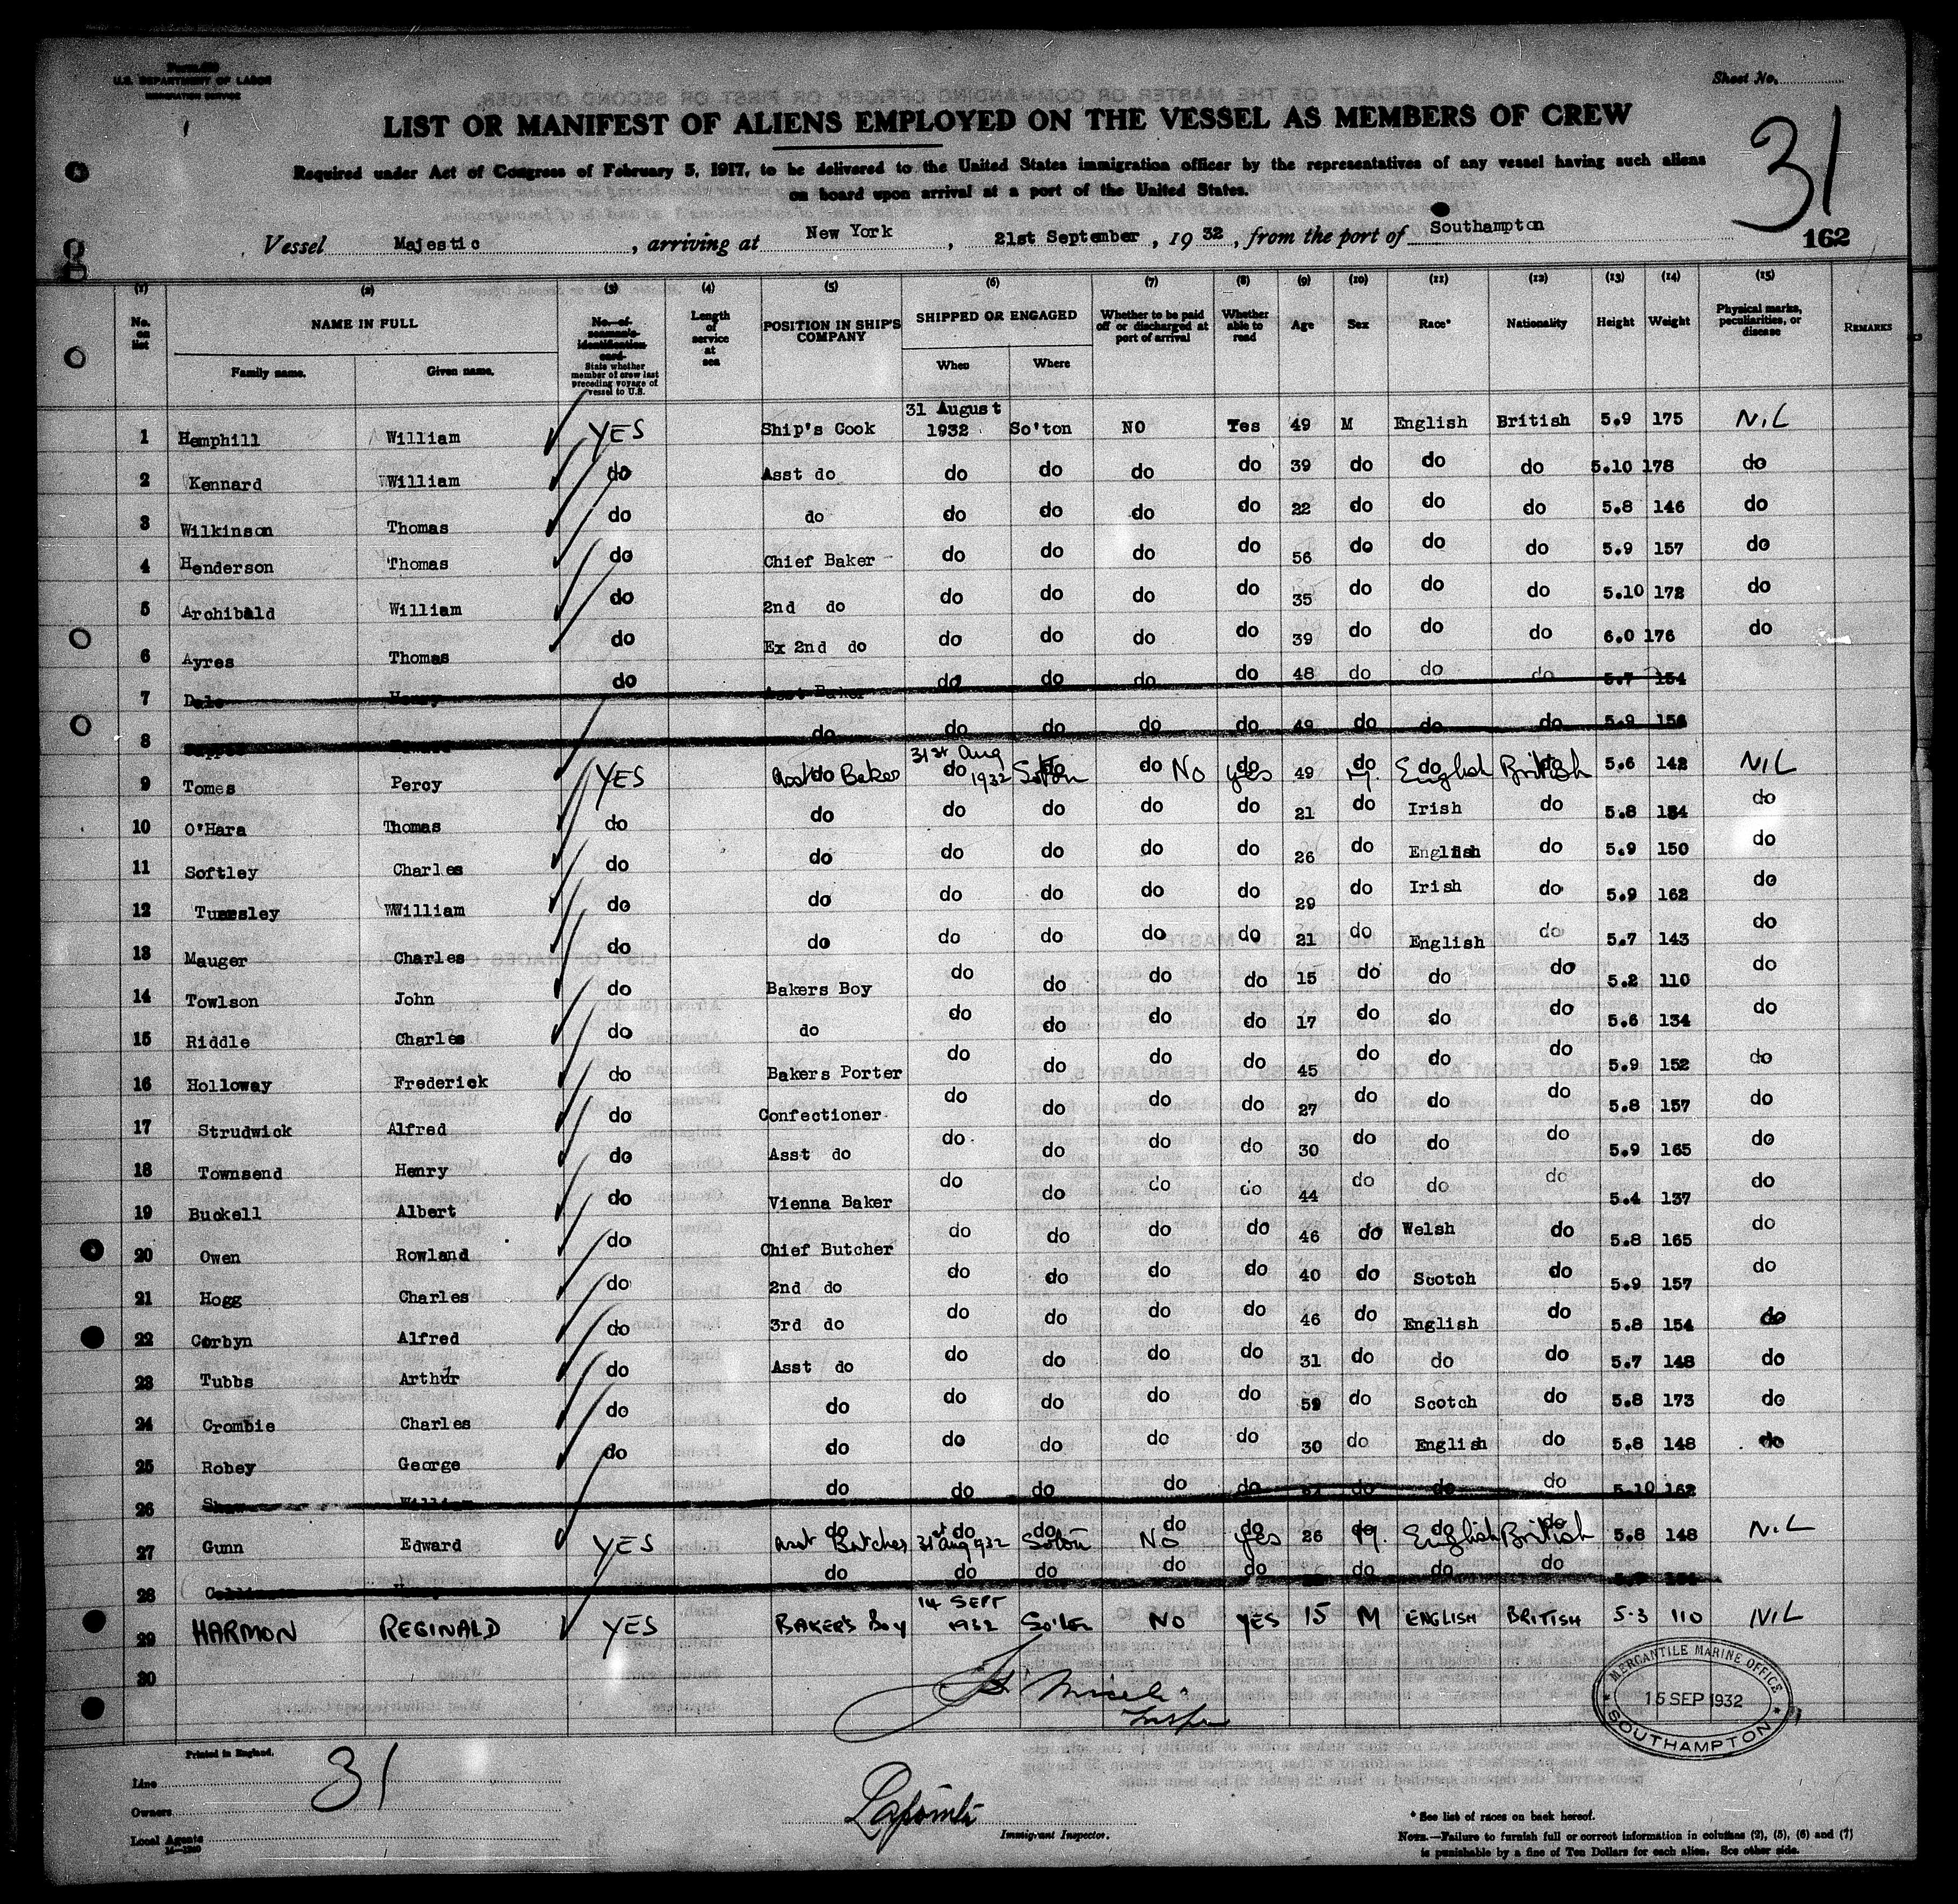 U.S. DEPARTMENT OF LABOR
IMMIGRATION SERVICE
Sheet No.
LIST OR MANIFEST OF ALIENS EMPLOYED ON THE VESSEL AS MEMBERS OF CREW
31
Required under Act of Congress of February 5, 1917, to be delivered to the United States immigration officer by the representatives of any vessel having such aliens
on board upon arrival at a port of the United States.
Vessel Majestic, arriving at New York, 21st September, 1932, from the port of Southampton
162
(1) (2) (3) (4) (5) (6) (7) (8) (9) (10) (11) (12) (13) (14) (15)
No. on list NAME IN FULL Family name. Given name. No. of seaman's identification card. State whether member of crew last preceding voyage of vessel to U.S. Length of service at sea POSITION IN SHIP'S COMPANY SHIPPED OR ENGAGED When Where Whether to be paid off or discharged at port of arrival Whether able to read Age Sex Race* Nationality Height Weight Physical marks, peculiarities, or disease REMARKS
1 Hemphill William YES Ship's Cook 31 August 1932 So'ton NO Yes 49 M English British 5.9 175 NIL
2 Kennard William do Asst do do do do do 39 do do do 5.10 178 do
3 Wilkinson Thomas do do do do do do 22 do do do 5.8 146 do
4 Henderson Thomas do Chief Baker do do do do 56 do do do 5.9 157 do
5 Archibald William do 2nd do do do do do 35 do do do 5.10 172 do
6 Ayres Thomas do Ex 2nd do do do do do 39 do do do 6.0 176 do
7 Dale Henry do Asst Baker do do do do 48 do do do 5.7 154
8 do do do do do 49 do do do 5.9
9 Tomes Percy YES Asst do Baker 31st Aug do 1932 So'ton do No yes 49 M. English British 5.6 142 NIL
10 O'Hara Thomas do do do do do do 21 do Irish do 5.8 do
11 Softley Charles do do do do do do 26 do English do 5.9 150 do
12 William do do do do do do 29 do Irish do 5.9 162 do
13 Mauger Charles do do do do do do 21 do English do 5.7 143 do
14 Towlson John do Bakers Boy do do do do 15 do do do 5.2 110 do
15 Riddle Charles do do do do do do 17 do do do 5.6 134 do
16 Holloway Frederick do Bakers Porter do do do do 45 do do do 5.9 152 do
17 Strudwick Alfred do Confectioner do do do do 27 do do do 5.8 157 do
18 Townsend Henry do Asst do do do do do 30 do do do 5.9 165 do
19 Buckell Albert do Vienna Baker do do do do 44 do do do 5.4 137 do
20 Owen Rowland do Chief Butcher do do do do 46 do Welsh do 5.8 165 do
21 Hogg Charles do 2nd do do do do do 40 do Scotch do 5.9 157 do
22 Corbyn Alfred do 3rd do do do do do 46 do English do 5.8 154 do
23 Tubbs Arthur do Asst do do do do do 31 do do do 5.7 148 do
24 Crombie Charles do do do do do do 59 do Scotch do 5.8 173 do
25 Robey George do do do do do do 30 do English do 5.8 148 do
26 Shaw William do do do do do do do do 5.10 162
27 Gunn Edward YES Asst Butcher 31st Aug 1932 So'ton No yes 26 M. English British 5.8 148 NIL
28 do do do do do do do do
29 HARMON REGINALD YES BAKER'S BOY 14 SEPT 1932 So'ton NO YES 15 M ENGLISH BRITISH 5.3 110 NIL
30
MERCANTILE MARINE OFFICE
15 SEP 1932
SOUTHAMPTON
Printed in England.
Line
31
Owners
Local Agents
Immigrant Inspector.
* See list of races on back hereof.
NOTE.—Failure to furnish full or correct information in columns (2), (5), (6) and (7)
is punishable by a fine of Ten Dollars for each alien. See other side.